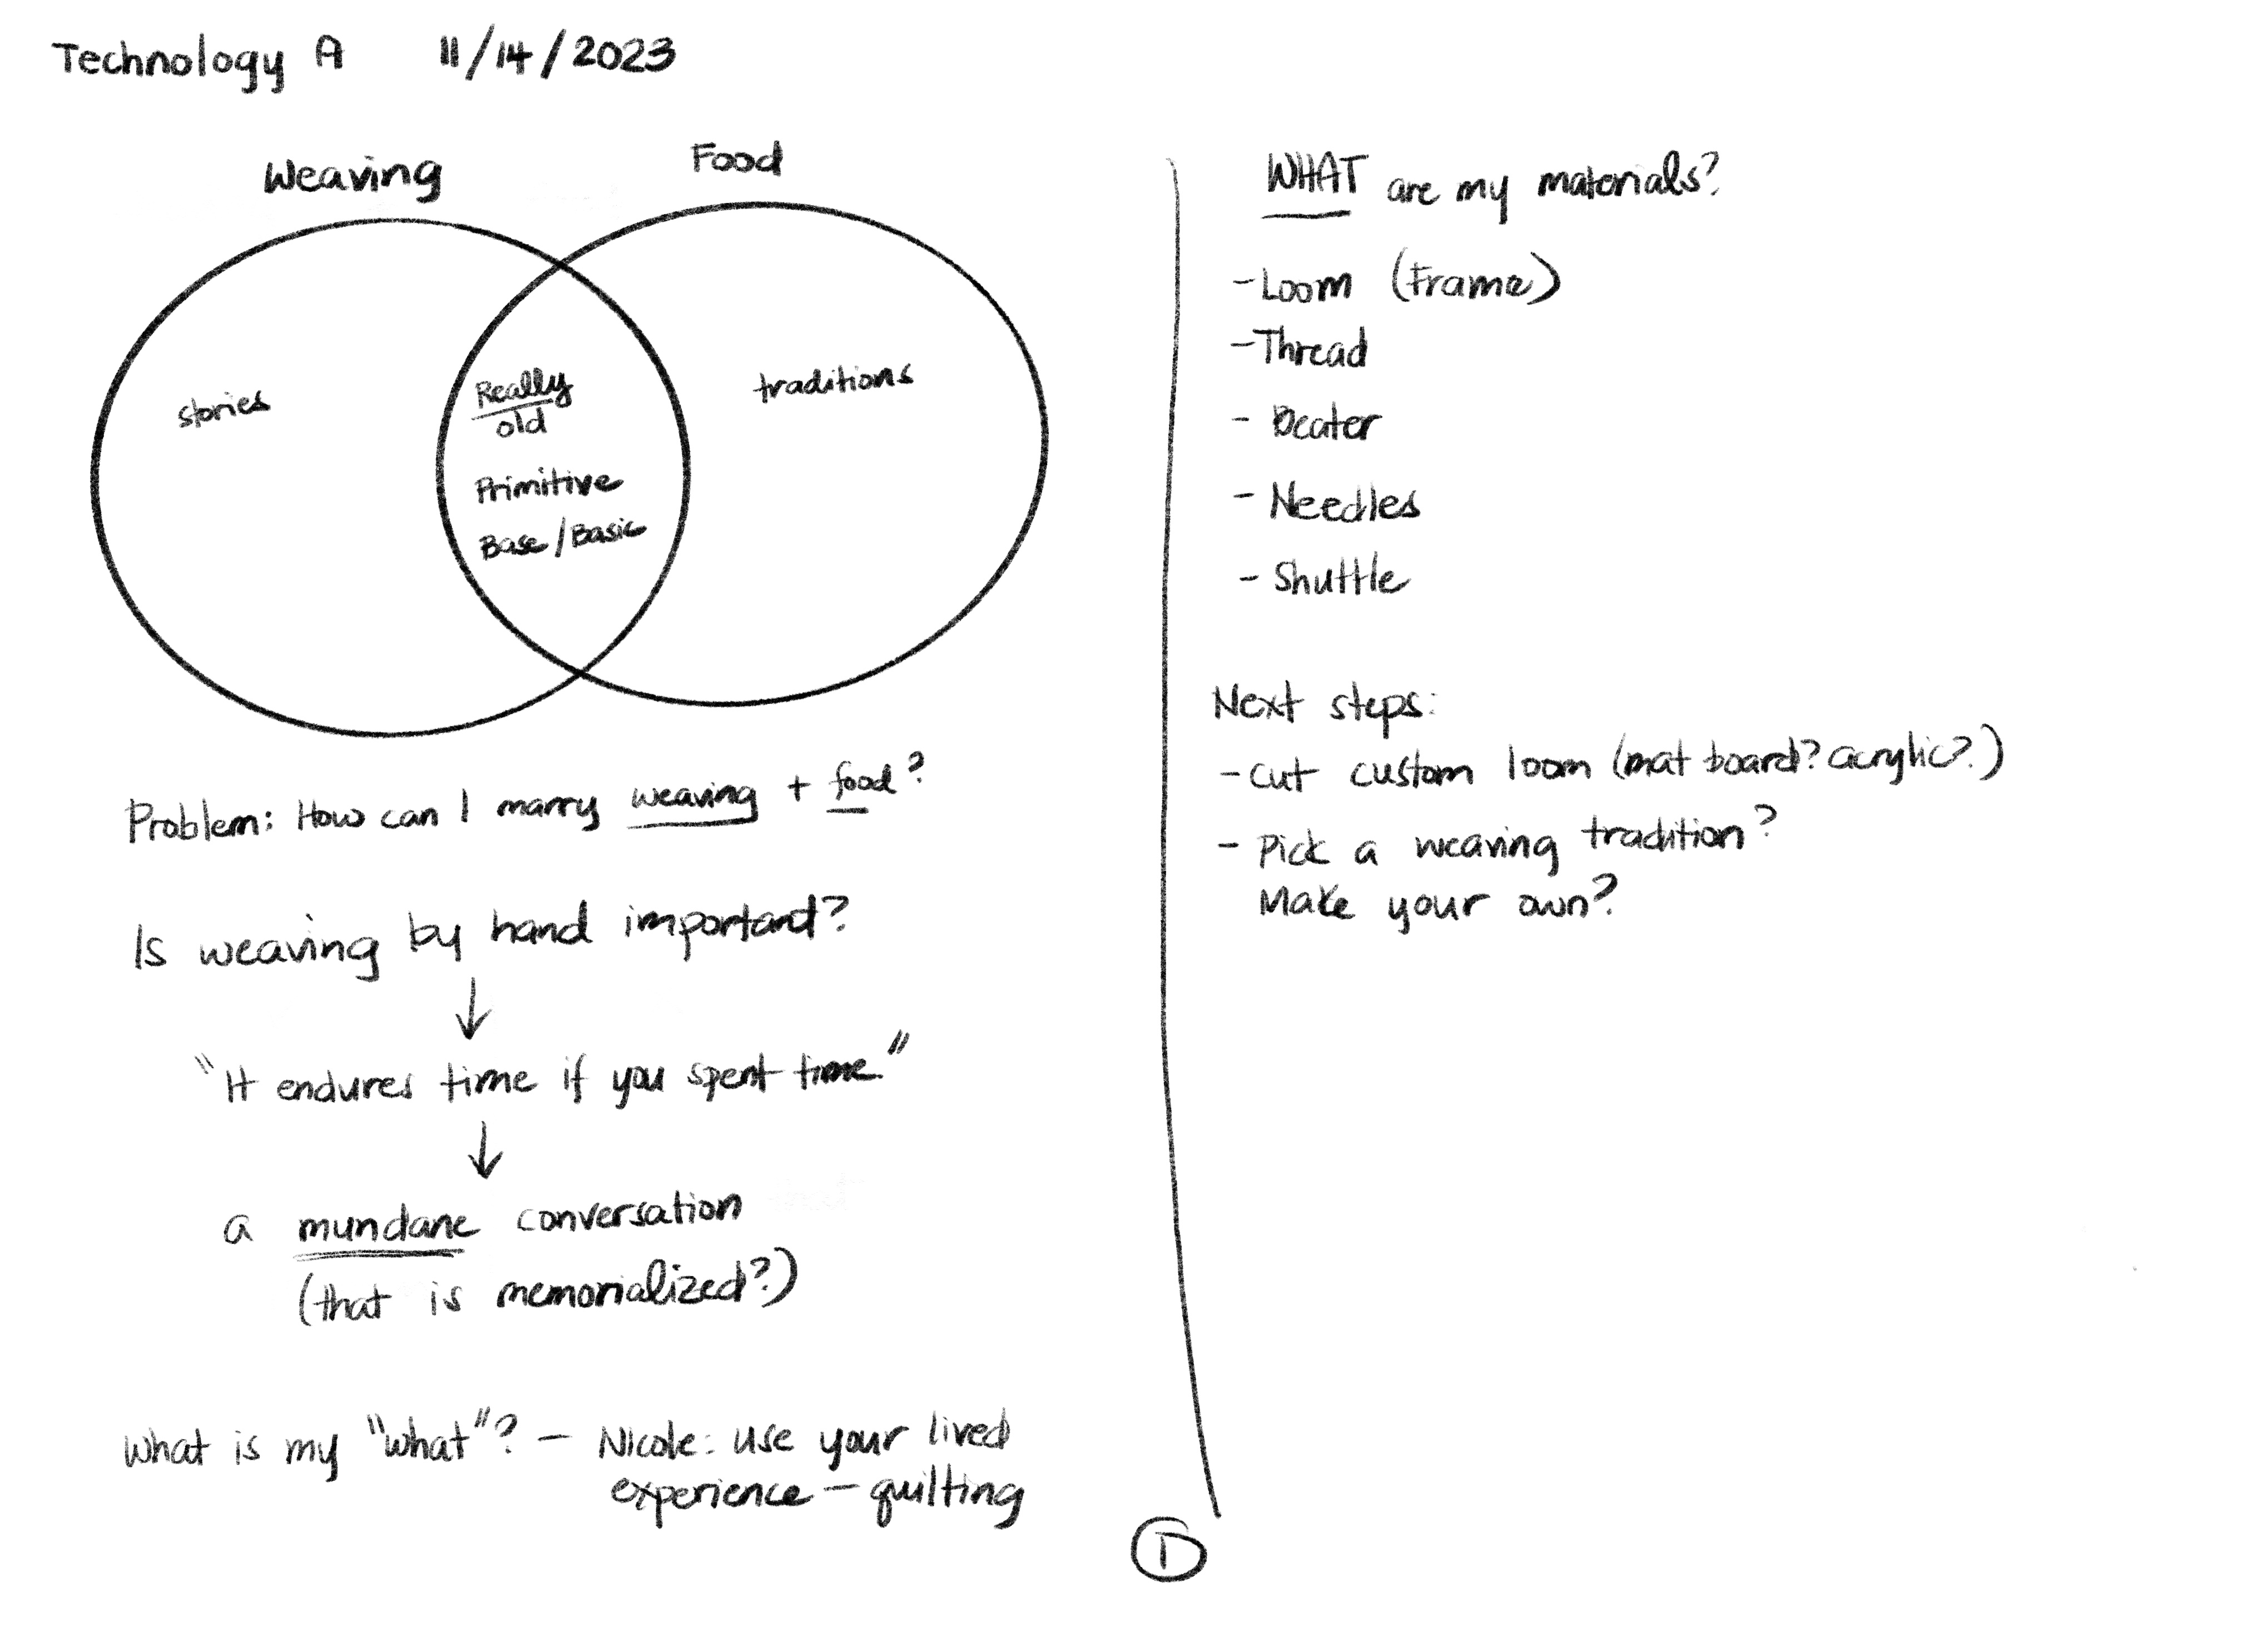 Technology A 11/14/2023
Weaving
Food
stories
Really
old
Primitive
Base/Basic
traditions
Problem: How can I marry weaving + food?
Is weaving by hand important?
"It endures time if you spent time"
a mundane conversation
(that is memorialized?)
What is my "what"? - Nicole: use your lived
experience - quilting
WHAT are my materials?
- Loom (Frame)
- Thread
- Beater
- Needles
- Shuttle
Next steps:
- cut custom loom (mat board? acrylic?)
- Pick a weaving tradition?
Make your own?
1